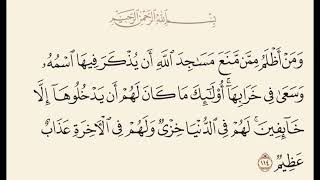 بِسْمِ ٱللَّهِ ٱلرَّحْمَٰنِ ٱلرَّحِيمِ
وَمَنْ أَظْلَمُ مِمَّن مَّنَعَ مَسَٰجِدَ ٱللَّهِ أَن يُذْكَرَ فِيهَا ٱسْمُهُۥ
وَسَعَىٰ فِى خَرَابِهَآ ۚ أُو۟لَٰٓئِكَ مَا كَانَ لَهُمْ أَن يَدْخُلُوهَآ إِلَّا
خَآئِفِينَ ۚ لَهُمْ فِى ٱلدُّنْيَا خِزْىٌ وَلَهُمْ فِى ٱلْءَاخِرَةِ عَذَابٌ
عَظِيمٌ ١١٤